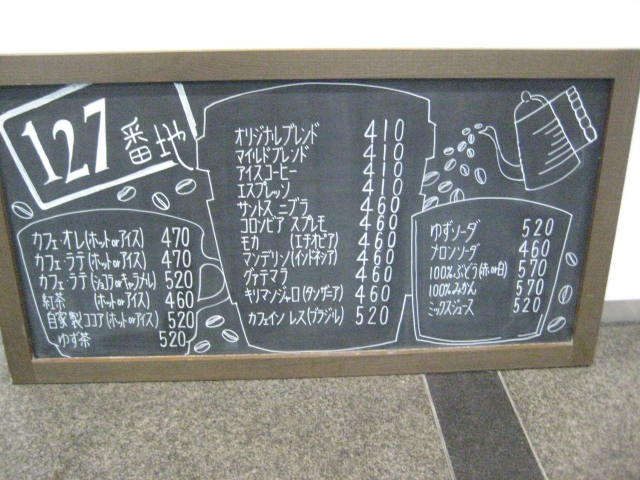 127番地
カフェ オレ(ホット or アイス) 470
カフェ ラテ(ホット or アイス) 470
カフェ ラテ(ショコラ or キャラメル) 520
紅茶 (ホット or アイス) 460
自家製ココア(ホット or アイス) 520
ゆず茶 520
オリジナルブレンド 410
マイルドブレンド 410
アイスコーヒー 410
エスプレッソ 410
サントス ニブラ 460
コロンビア スプレモ 460
モカ (エチオピア) 460
マンデリン(インドネシア) 460
グァテマラ 460
キリマンジャロ(タンザニア) 460
カフェイン レス(ブラジル) 520
ゆずソーダ 520
ブロンソーダ 460
100%ぶどう(赤 or 白) 570
100%みかん 570
ミックスジュース 520